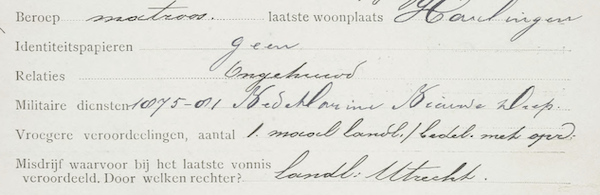 Beroep matroos. laatste woonplaats Harlingen
Identiteitspapieren geen
Relaties Ongehuwd
Militaire diensten 1875-81 Ned. Marine Nieuwe Diep.
Vroegere veroordeelingen, aantal 1. maal landl:/bedel. met opz:
Misdrijf waarvoor bij het laatste vonnis
veroordeeld. Door welken rechter? landl: Utrecht.